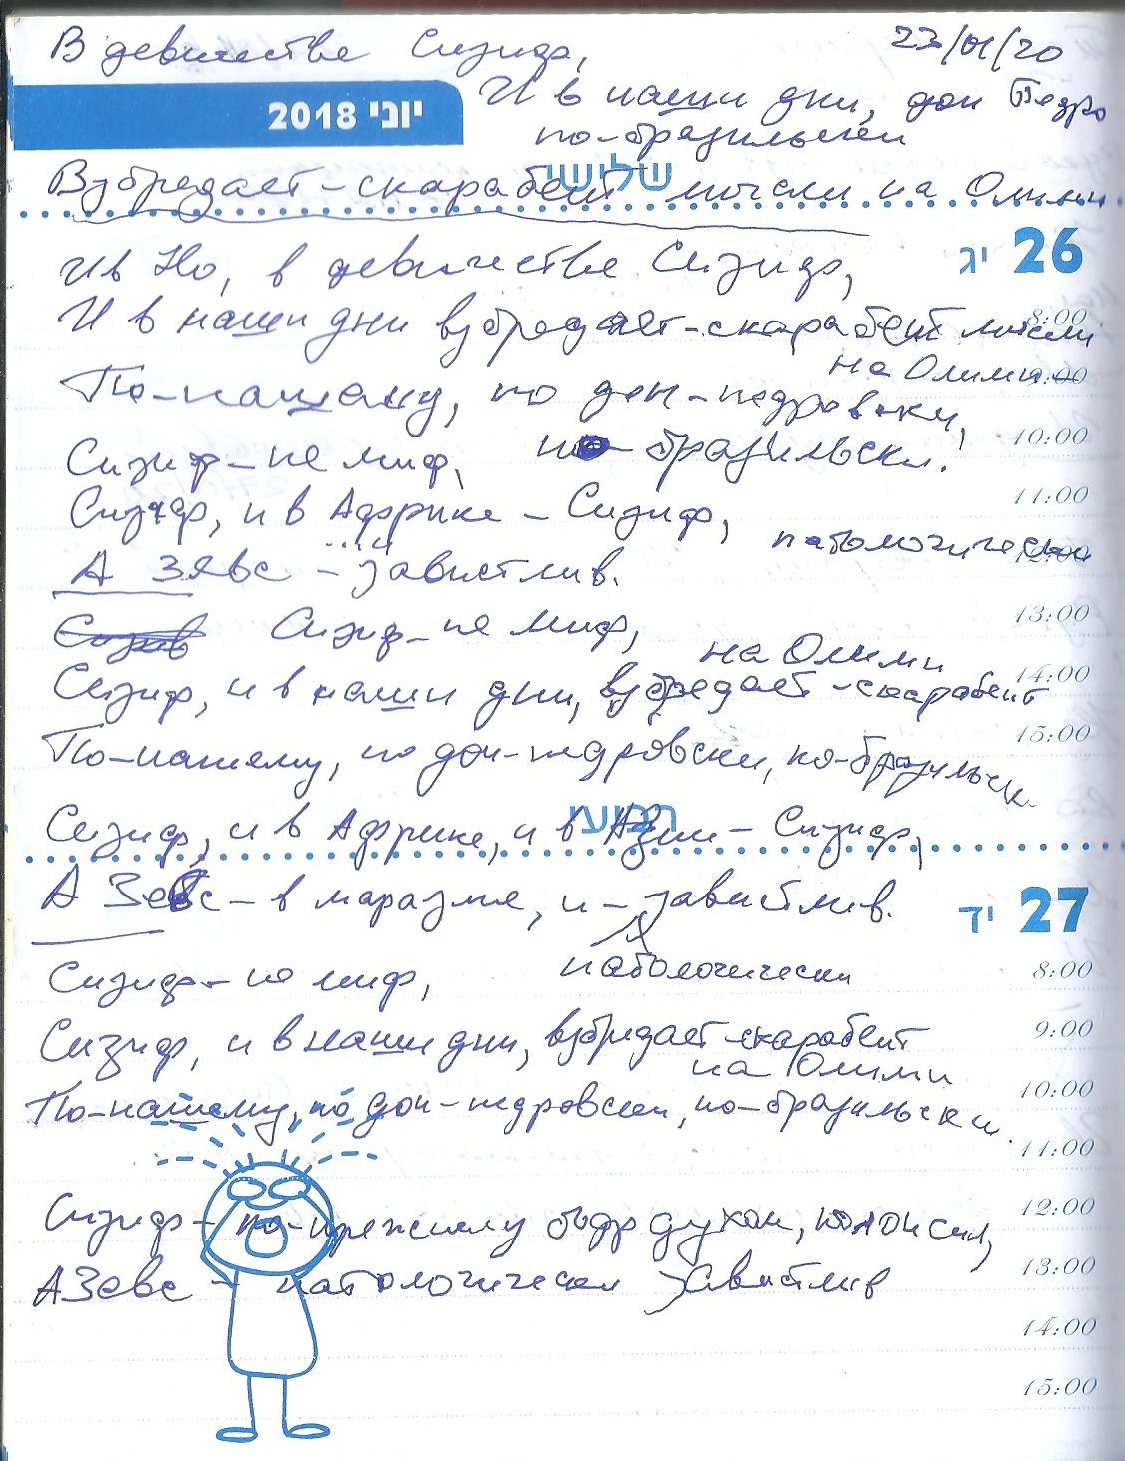 В девичестве Сизиф,
23/01/20
И в наши дни, дон Педро
по-бразильски
יוני 2018
שלישי
Взбредает-скарабеит мысли на Олимп
26 יג
И в Но, в девичестве Сизиф,
8:00
И в наши дни взбредает-скарабеит мысли
на Олимп
По-нашему, по дон-педровски,
10:00
по-бразильски!
Сизиф - не миф,
11:00
Сизиф, и в Африке - Сизиф,
патологически
12:00
А Зевс - завистлив.
13:00
Сизиф - не миф,
на Олимп
14:00
Сизиф, и в наши дни, взбредает-скарабеит
15:00
По-нашему, по дон-педровски, по-бразильск
רביעי
Сизиф, и в Африке, и в Азии - Сизиф,
27 יד
А Зевс - в маразме, и - завистлив.
патологически
8:00
Сизиф - не миф,
9:00
Сизиф, и в наши дни, взбредает-скарабеит
на Олимп
10:00
По-нашему, по дон-педровски, по-бразильски.
11:00
12:00
Сизиф - по-прежнему бодр духом, полон сил,
13:00
А Зевс - патологически завистлив
14:00
15:00